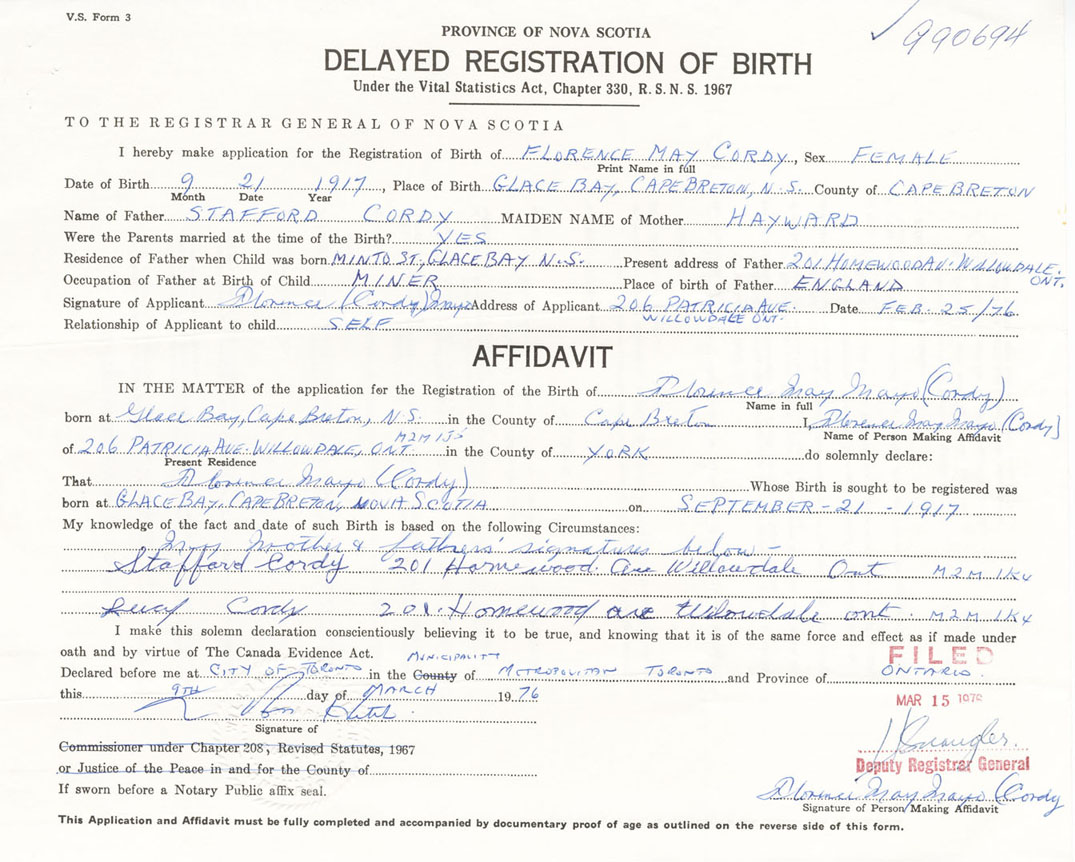 V.S. Form 3
990694
PROVINCE OF NOVA SCOTIA
DELAYED REGISTRATION OF BIRTH
Under the Vital Statistics Act, Chapter 330, R. S. N. S. 1967
TO THE REGISTRAR GENERAL OF NOVA SCOTIA
I hereby make application for the Registration of Birth of FLORENCE MAY CORDY, Sex FEMALE
Print Name in full
Date of Birth 9 21 1917, Place of Birth GLACE BAY, CAPE BRETON, N.S. County of CAPE BRETON
Month Date Year
Name of Father STAFFORD CORDY MAIDEN NAME of Mother HAYWARD
Were the Parents married at the time of the Birth? YES
Residence of Father when Child was born MINTO ST, GLACE BAY N.S. Present address of Father 201 HOMEWOOD AV. WILLOWDALE. ONT.
Occupation of Father at Birth of Child MINER Place of birth of Father ENGLAND
Signature of Applicant Florence (Cordy) Mayo Address of Applicant 206 PATRICIA AVE. WILLOWDALE ONT. Date FEB. 25/76.
Relationship of Applicant to child SELF
AFFIDAVIT
IN THE MATTER of the application for the Registration of the Birth of Florence May Mayo (Cordy)
Name in full
born at Glace Bay, Cape Breton, N.S. in the County of Cape Breton I, Florence May Mayo (Cordy)
Name of Person Making Affidavit
of 206 PATRICIA AVE. WILLOWDALE, ONT. M2M 1J5 in the County of YORK do solemnly declare:
Present Residence
That Florence Mayo (Cordy) Whose Birth is sought to be registered was
born at GLACE BAY, CAPE BRETON, NOVA SCOTIA on SEPTEMBER - 21 - 1917
My knowledge of the fact and date of such Birth is based on the following Circumstances:
My Mother & fathers' signatures below -
Stafford Cordy 201 Homewood. Ave Willowdale Ont M2M 1K4
Lucy Cordy 201. Homewood ave Willowdale ont. M2M 1K4
I make this solemn declaration conscientiously believing it to be true, and knowing that it is of the same force and effect as if made under
oath and by virtue of The Canada Evidence Act.
MUNICIPALITY
FILED
Declared before me at CITY OF TORONTO in the County of METROPOLITAN TORONTO and Province of ONTARIO.
this 9TH day of MARCH 1976
MAR 15 1976
Signature of
Commissioner under Chapter 208, Revised Statutes, 1967
or Justice of the Peace in and for the County of
Deputy Registrar General
If sworn before a Notary Public affix seal.
Florence May Mayo (Cordy
Signature of Person Making Affidavit
This Application and Affidavit must be fully completed and accompanied by documentary proof of age as outlined on the reverse side of this form.